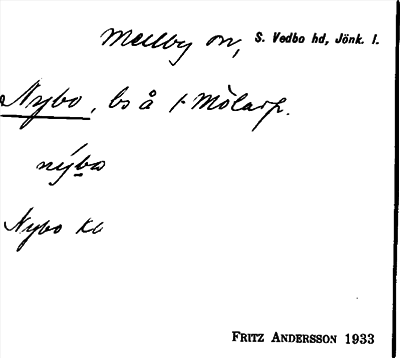 Mellby sn, S. Vedbo hd, Jönk. l.
Nybo, ls å f Mölarp.
nýbo
Nybo Ka
FRITZ ANDERSSON 1933